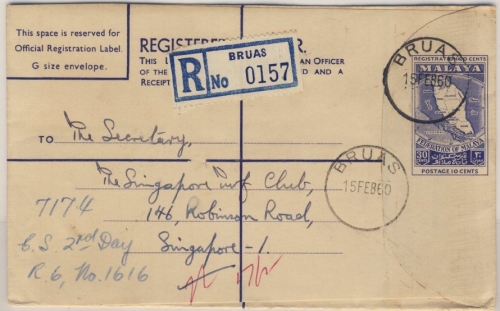 This space is reserved for
Official Registration Label.
G size envelope.
REGISTERED
R.
THIS
AN OFFICER
OF THE
AND A
RECEIPT
BRUAS
R No 0157
BRUAS
15FE860
REGISTRATION 20 CENTS
MALAYA
FEDERATION OF MALAYA
30
POSTAGE 10 CENTS
TO
The Secretary,
BRUAS
15FE860
The Singapore Turf Club,
146, Robinson Road,
Singapore-1.
7174
C.S. 2nd Day
R 6, No. 1616